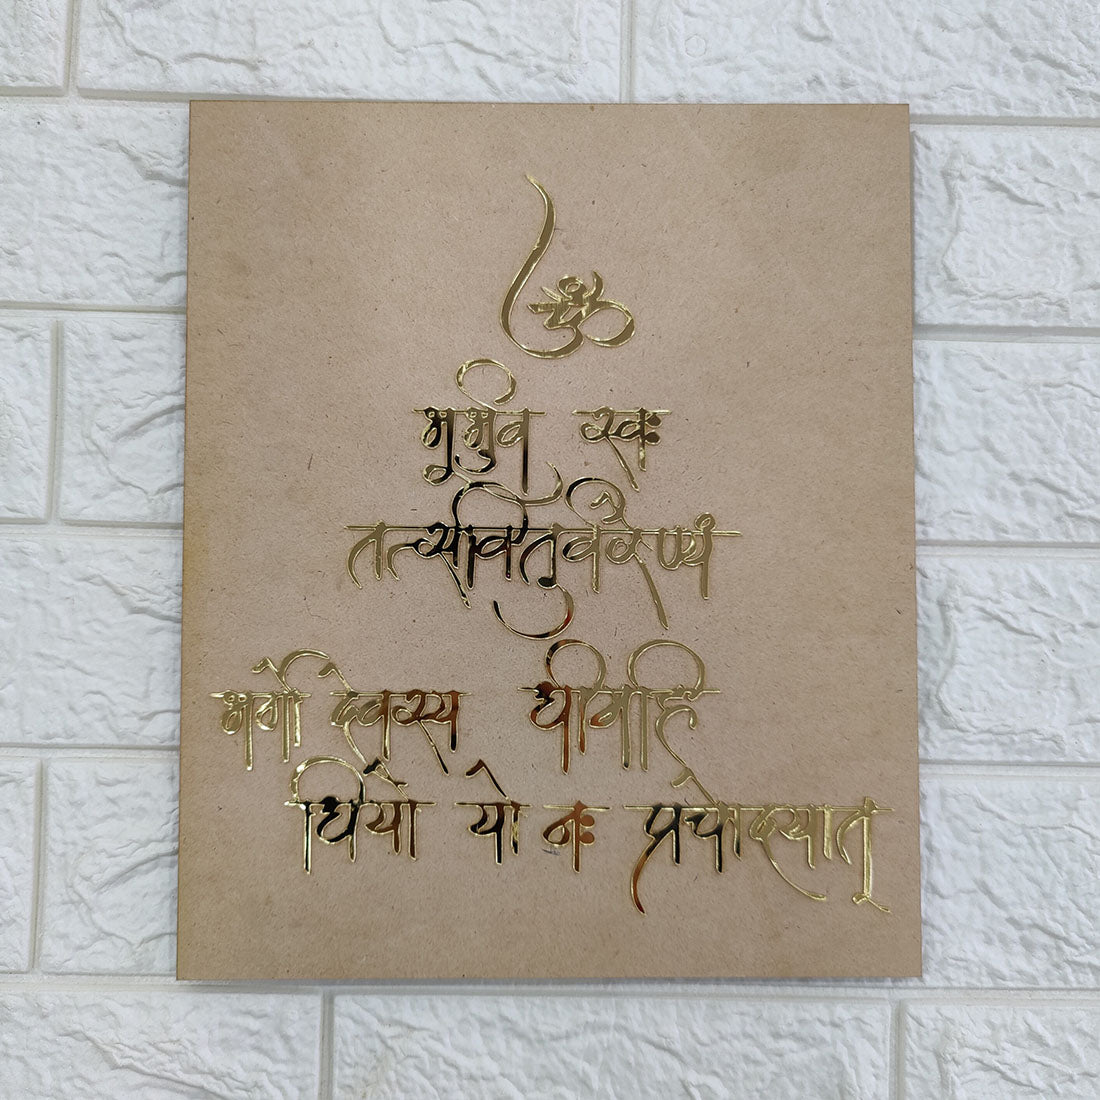 ॐ
भूर्भुव स्वः
तत्सवितुर्वरेण्यं
भर्गो देवस्य धीमहि
धियो यो नः प्रचोदयात्